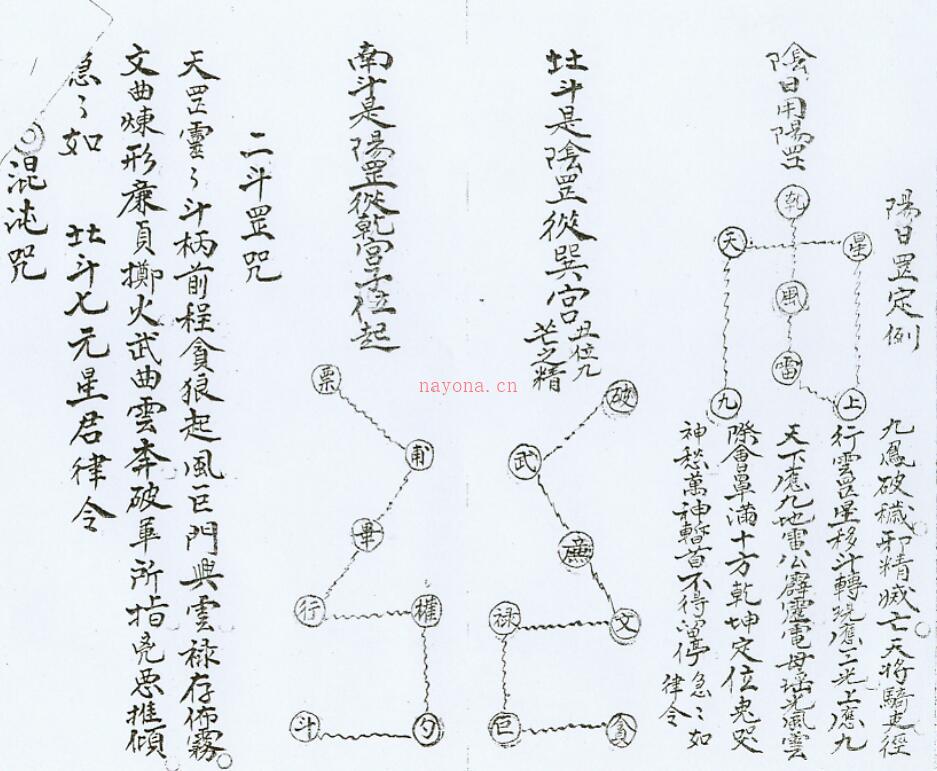 陽日罡定例
九鳳破穢邪精滅亡天将騎吏徑
行雲罡星移斗轉現應三光上應九
天下應九地雷公霹靂電母瑶光風雲
際會罩滿十方乾坤定位鬼哭
神愁萬神暫首不得畄停急〻如
律令
陰日用陽罡
乹
天 星
風
雷
九 上
北斗是陰罡從巽宮丑位九
芒之精
破
武
廉
禄 文
巨 貪
南斗是陽罡從乾宮子位起
票
甫
畢
行 權
斗 勺
二斗罡咒
天罡靈〻斗柄前程貪狼起風巨門興雲禄存佈霧
文曲煉形廉貞擲火武曲雲奔破軍所指兇惡摧傾
急〻如 北斗七元星君律令
混沌咒
nayona.cn